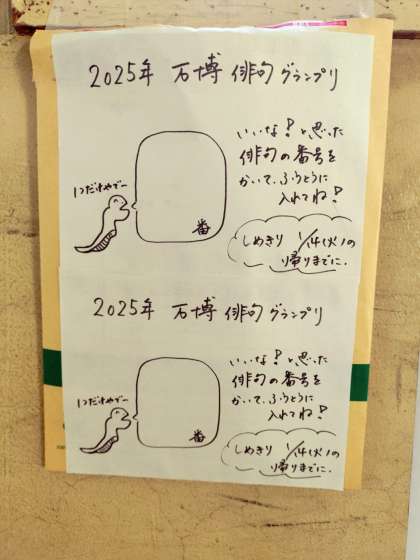 2025年 万博 俳句 グランプリ
いいな！と思った
俳句の番号を
かいて、ふうとうに
入れてね！
1つだけやでー
番
しめきり 1/14(火)の
帰りまでに.
2025年 万博 俳句 グランプリ
いいな！と思った
俳句の番号を
かいて、ふうとうに
入れてね！
1つだけやでー
番
しめきり 1/14(火)の
帰りまでに.